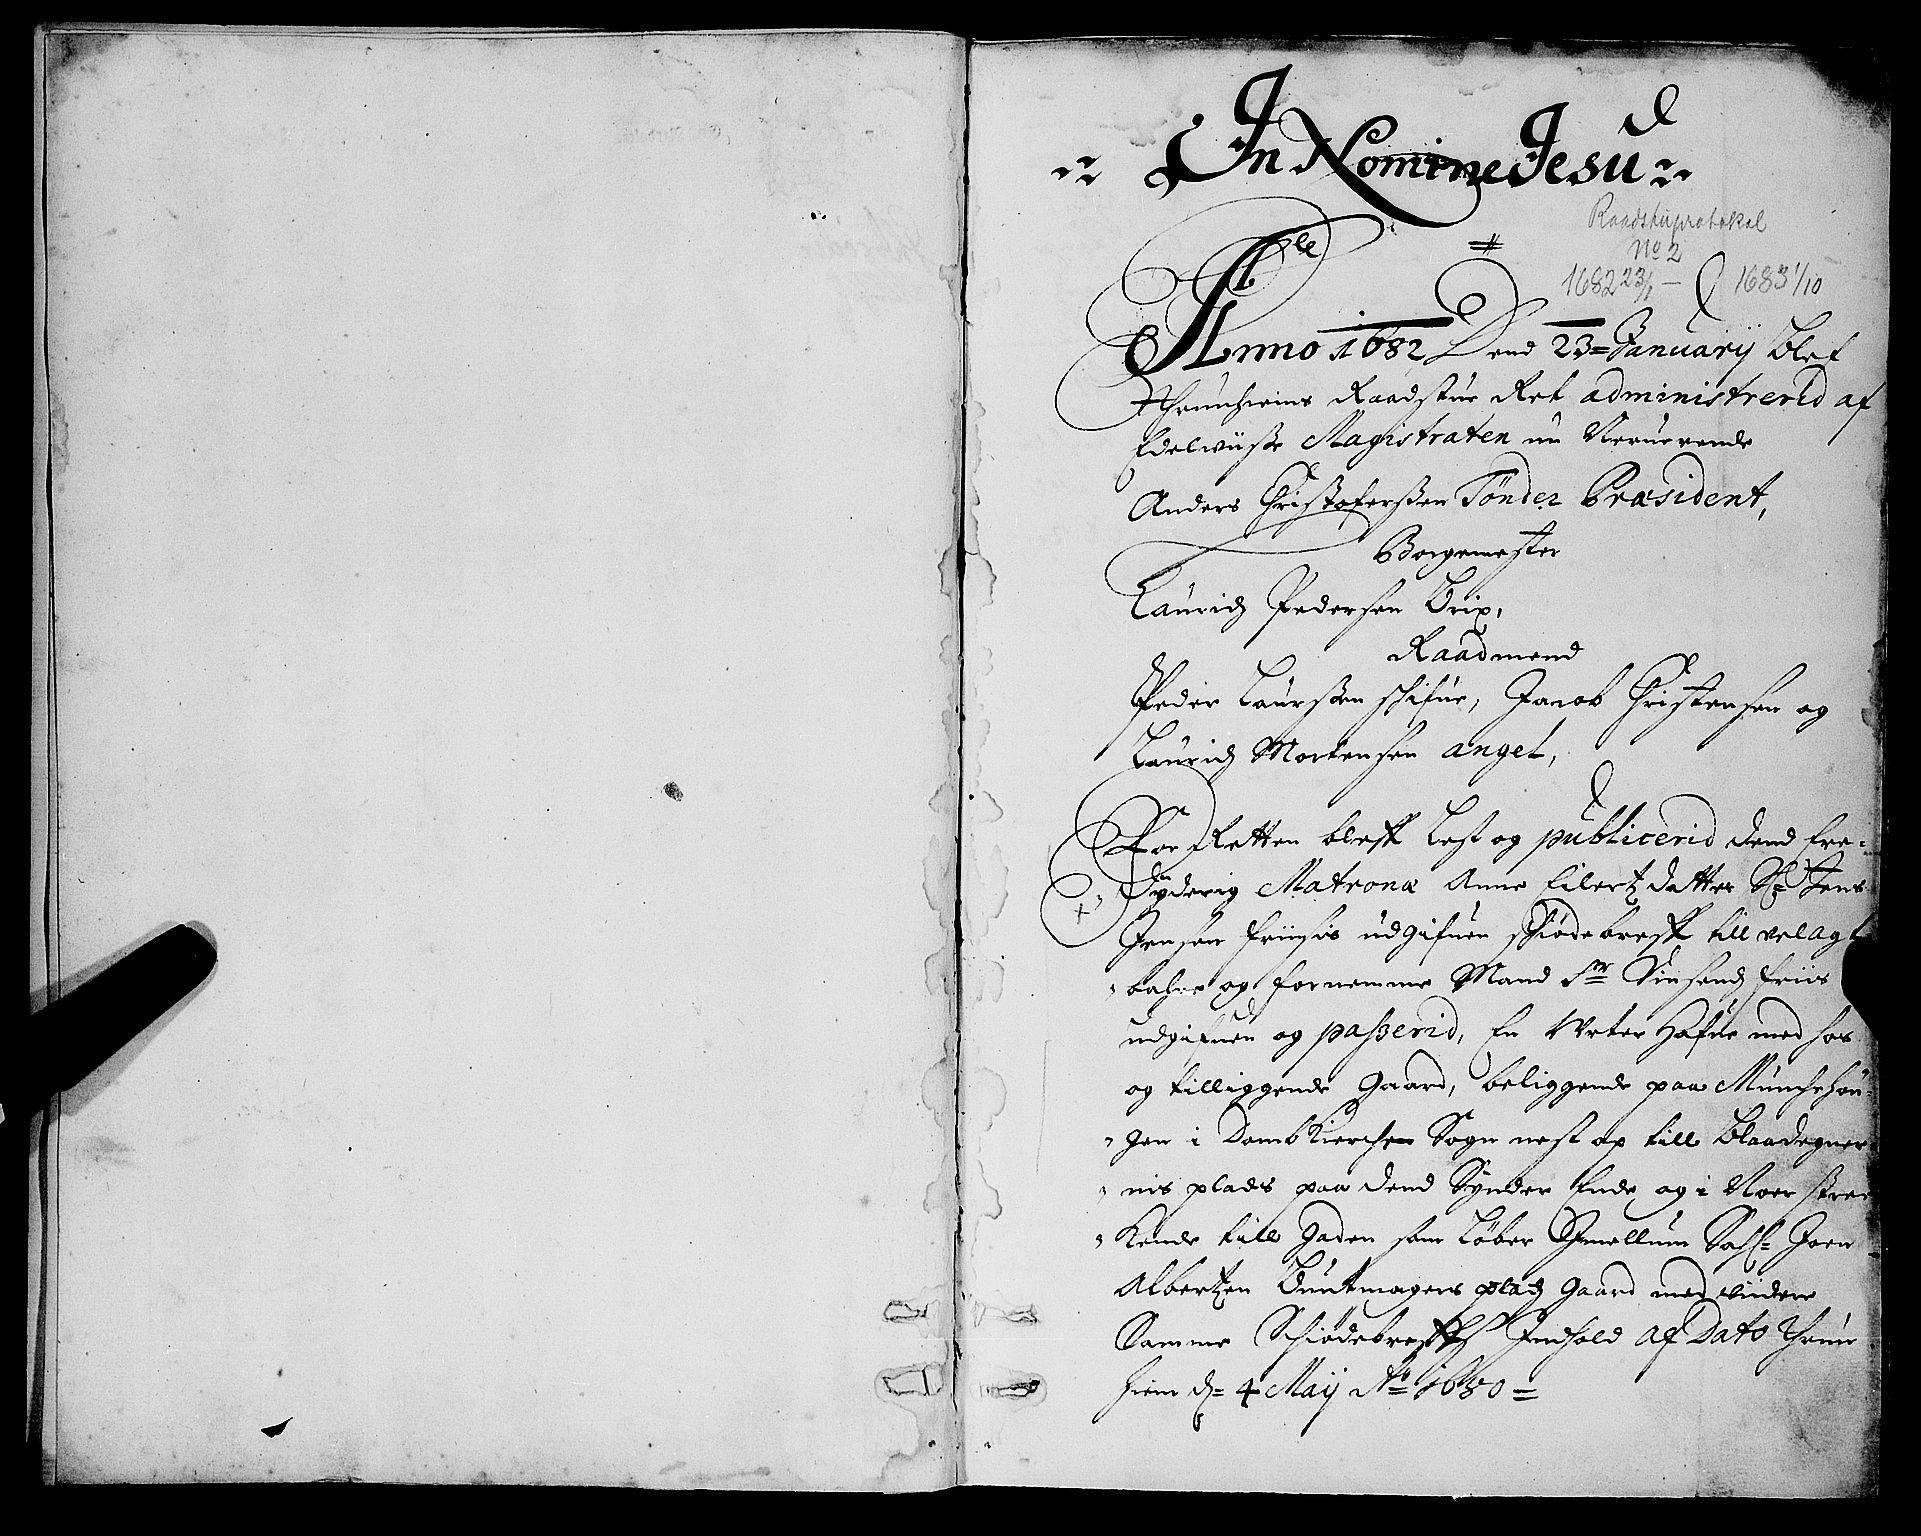 In Nomine Jesu
Raadstueprotokol
No 2
1682 23/1 – 1683 1/10
Anno 1682 Dend 23 = Januarij blef
Thrunhiems Raadstue Ret administrerid af
Edelwiise Magistraten nu Neruerende
Anders Christofersen Tönder Præsident,
Borgemester
Lauridz Pedersen Brix,
Raadmend
Peder Laursen schifue, Jacob Christensen og
Lauridz Mortensen anget,
For Retten bleff Lest og publicerid dend Ere-
Dyderig Matrona Anne Eilertz datter Sl= Jens
Jensen friisis udgifuen schiöde breff till velagt
bahre og fornemme Mand Sr Vinsendz friis
udgifuen og passerid, En Urter Hafue med hos
og tilliggende Gaard, beliggende paa Munchehau-
gen i Domb Kierche Sogn nest op till Blaadegner
nis plads paa dend Synder Ende, og i Noer strec
Kende till Gaden som Löber Imellum Sahl= Joen
Albertzen Buntmagers pladz Gaard med viidere
Samme Schiödebreffs Indhold af Dato Thrun
hiem d= 4 Maij Ao 1680 =